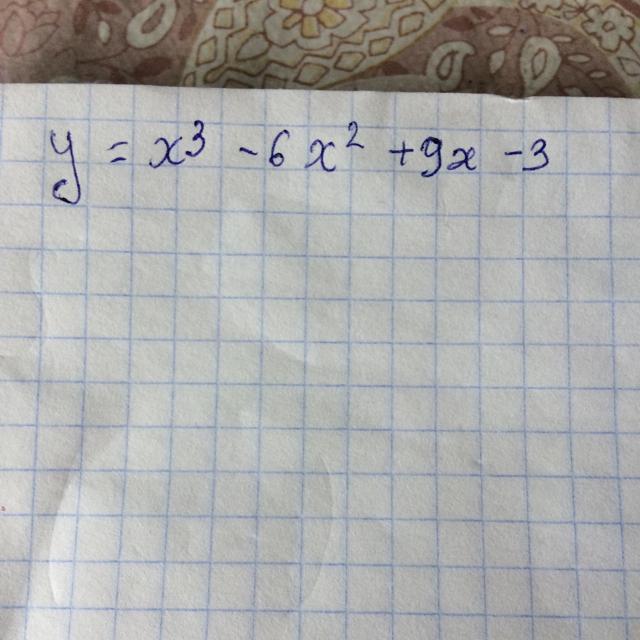 y = x³ - 6x² + 9x - 3